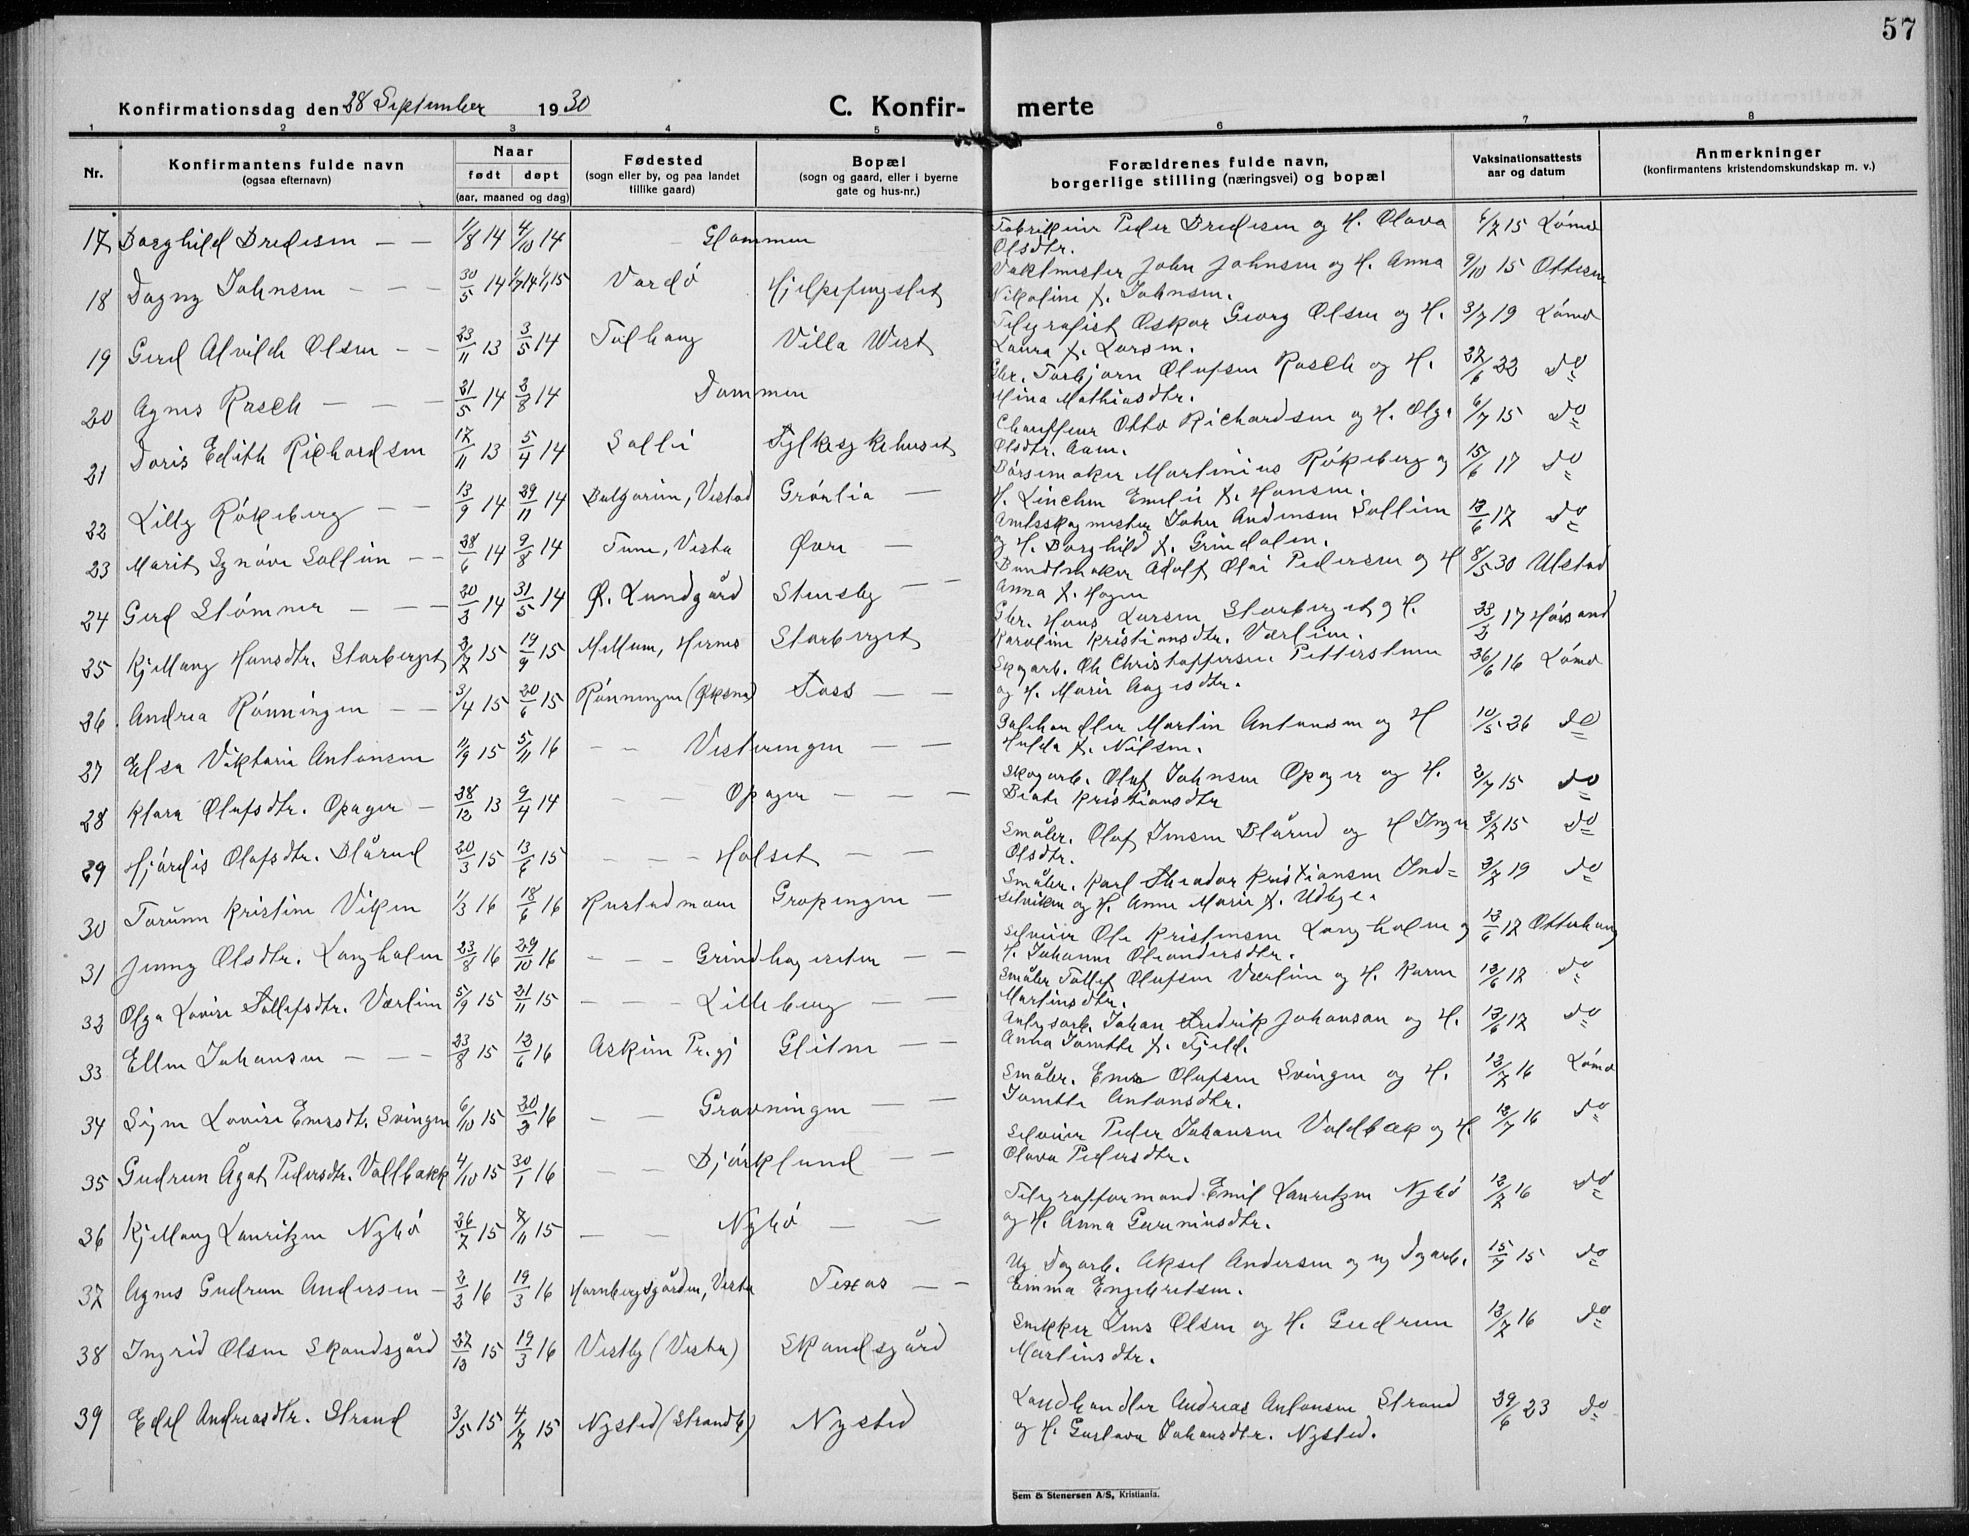 57
Konfirmationsdag den 28 September 1930
C. Konfir- merte
1 2 3 4 5 6 7 8
Nr.
Konfirmantens fulde navn
(ogsaa efternavn)
Naar
født døpt
(aar, maaned og dag)
Fødested
(sogn eller by, og paa landet
tillike gaard)
Bopæl
(sogn og gaard, eller i byerne
gate og hus-nr.)
Forældrenes fulde navn,
borgerlige stilling (næringsvei) og bopæl
Vaksinationsattests
aar og datum
Anmerkninger
(konfirmantens kristendomskundskap m. v.)
17 Borghild Bredesen — — 1/8 14 4/10 14 Glommen
Peder Bredesen og H. Olava
Olsdtr.
15 Lømo
18 Dagny Johnsen — — — 30/5 14 Vardø
Vaktmester John Johnsen og H. Anna
Nikoline f. Johnsen.
9/10 15 Ottesen
19 Gerd Alvilde Olsen — — 23/11 13 3/5 14 Tolhaug Villa West
Telegrafist Oskar Georg Olsen og H.
Laura f. Larsen.
3/7 19 Lømo
20 Agnes Rasch — — — 31/5 14 2/8 14 Dammen
Gbr. Torbjørn Olufsen Rasch og H.
Mina Mathiasdtr.
27/6 22 do
21 Doris Edith Richardsen 17/11 13 5/4 14 Sollie Fylkesykehuset
Chauffeur Otto Richardsen og H. Olga
Olsdtr. Aam.
6/7 15 do
22 Lilly Røkeberg — — 13/9 14 29/11 14 Bulgarien, Vestad Grønlia —
Børsemaker Martinius Røkeberg og
H. Linchen Emelie f. Hansen.
15/6 17 do
23 Marit Synøve Sollien — — 28/6 14 9/8 14 Tune, Vestre Øvre —
Amtsskogmester John Andersen Sollien
og H. Borghild f. Grindalen.
12/6 17 do
24 Gerd Stømner — — — 20/3 14 31/5 14 Ø. Lundgård Stensby — —
Bundtmaker Adolf Olai Pedersen og H
Anna f. Hagen
8/5 30 Ulstad
25 Kjellaug Hansdtr. Storberget 2/7 15 19/9 15 Mellum, Hernes Storberget
Gbr. Hans Larsen Storberget og H.
Karoline Kristiansdtr. Værlien.
17
26 Andrea Rønningen — — 3/4 15 20/6 15 Rønningen (Øksna) Foss — —
Skogarb. Ole Christoffersen Petterstuen
og H. Marie Aagesdtr.
26/6 16 Lømo
27 Elsa Viktoria Antonsen 11/9 15 5/11 16 — — Vesteringen — —
Martin Antonsen og H
Hulda f. Nilsen.
10/5 26 do
28 Klara Olufsdtr. Opager — 28/12 13 9/4 14 — — Opager — — —
Skogarb. Oluf Johnsen Opager og H.
Beate Kristiansdtr
2/7 15 do
29 Hjørdis Olafsdtr. Blårud 20/3 15 13/6 15 — — — Holset — —
Småbr. Olaf Jensen Blårud og H Inga
Olsdtr.
2/7 15 do
30 Torunn Kristine Viken 1/3 16 18/6 16 Rustadmoen Gropengen —
Småbr. Karl Theodor Kristiansen Ind=
setviken og H. Anne Marie f. Udbye.
2/7 19 do
31 Jenny Olsdtr. Langholen 23/8 16 29/10 16 — — — Grindhageseter — —
Selveier Ole Kristensen Langholen og
H. Johanne Oleandersdtr.
12/6 17 Otterhaug
32 Olga Lovise Tollefsdtr. Værlien 5/9 15 21/11 15 — — — Lilleberg — —
Småbr Tollef Olufsen Værlien og H. Karen
Martinsdtr.
12/6 17 do
33 Ellen Johansen — — — 23/8 15 12/6 16 Askim Pr.gj Glitne — —
Anlegsarb. Johan Fredrik Johansen og H.
Anna Jonette f. Fjeld.
12/6 17 do
34 Signe Lovise Enersdtr. Svingen 6/10 15 20/2 16 — — Gravningen — —
Småbr. Ener Olufsen Svingen og H.
Jonette Antonsdtr.
12/7 16 Lømo
35 Gudrun Ågot Pedersdtr. Vollbakk 4/10 15 30/1 16 — — Bjørklund — —
Selveier Peder Johansen Voldbæk og H.
Olava Pedersdtr.
12/7 16 do
36 Kjellaug Lauritzen Nybø 26/7 15 7/11 15 — — Nybø — —
Telegrafformand Emil Lauritzen Nybø
og H. Anna Gureniusdtr.
12/7 16 do
37 Agnes Gudrun Andersen — 2/2 16 19/3 16 Hornbergsgården, Vestre Texas — —
Ug. Dagarb. Aksel Andersen og ug Dgarb.
Emma Engebretsen.
15/7 15 do
38 Ingrid Olsen Skandsgård 27/12 15 19/3 16 Vestby (Vestre) Skandsgård
Snekker Jens Olsen og H. Gudrun
Martinsdtr.
12/7 16 do
39 Edel Andreasdtr. Strand 3/5 15 4/7 15 Nysted (Strandb) Nysted
Landhandler Andreas Antonsen Strand
og H. Gustava Johansdtr. Nysted.
29/6 23 do
Sem & Stenersen A/S, Kristiania.